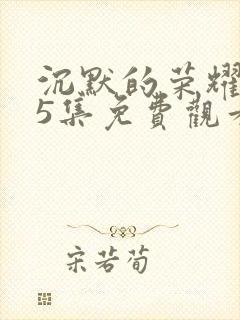 沉默的荣耀
5集免費觀看
宋若荀